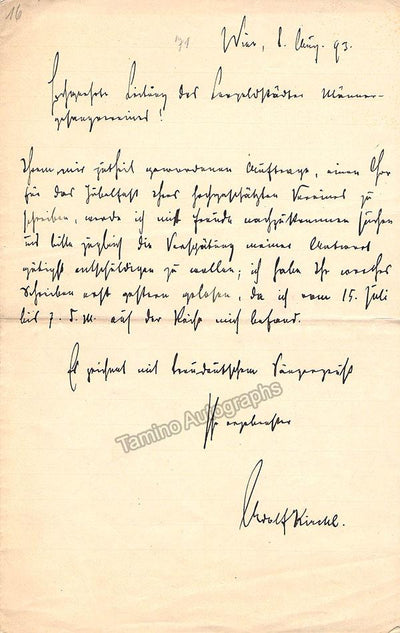 16
71
Wien, 8. Aug. 93.
Hochgeehrte Leitung des Leopoldstädter Männer-
gesangvereines!
Ihrem mir zutheil gewordenen Auftrage, einen Chor
für das Jubelfest Ihres hochgeschätzten Vereines zu
schreiben, werde ich mit Freude nachzukommen suchen
und bitte zugleich die Verspätung meiner Antwort
gütigst entschuldigen zu wollen; ich habe Ihr werthes
Schreiben erst gestern gelesen, da ich vom 15. Juli
bis 7. d. M. auf der Reise mich befand.
Es zeichnet mit treudeutschem Sängergruß
Ihr ergebenster
Adolf Kirchl.
Tamino Autographs